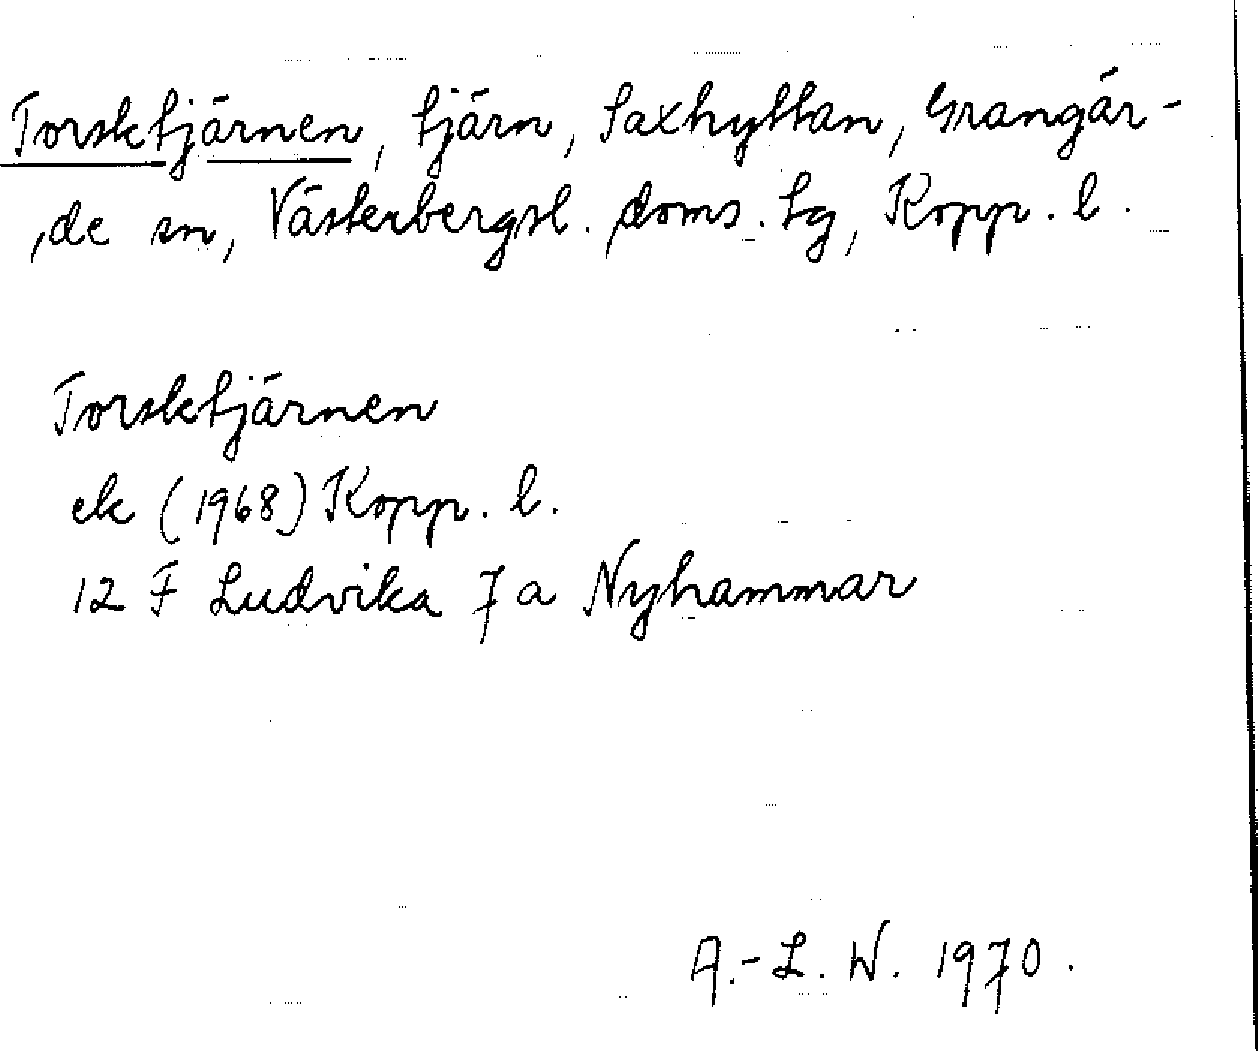 Torsktjärnen, tjärn, Saxhyttan, Grangär-
de sn, Västerbergsl. doms. tg, Kopp. l.
Torsktjärnen
ek (1968) Kopp. l.
12 F Ludvika 7 a Nyhammar
A.-L. W. 1970.